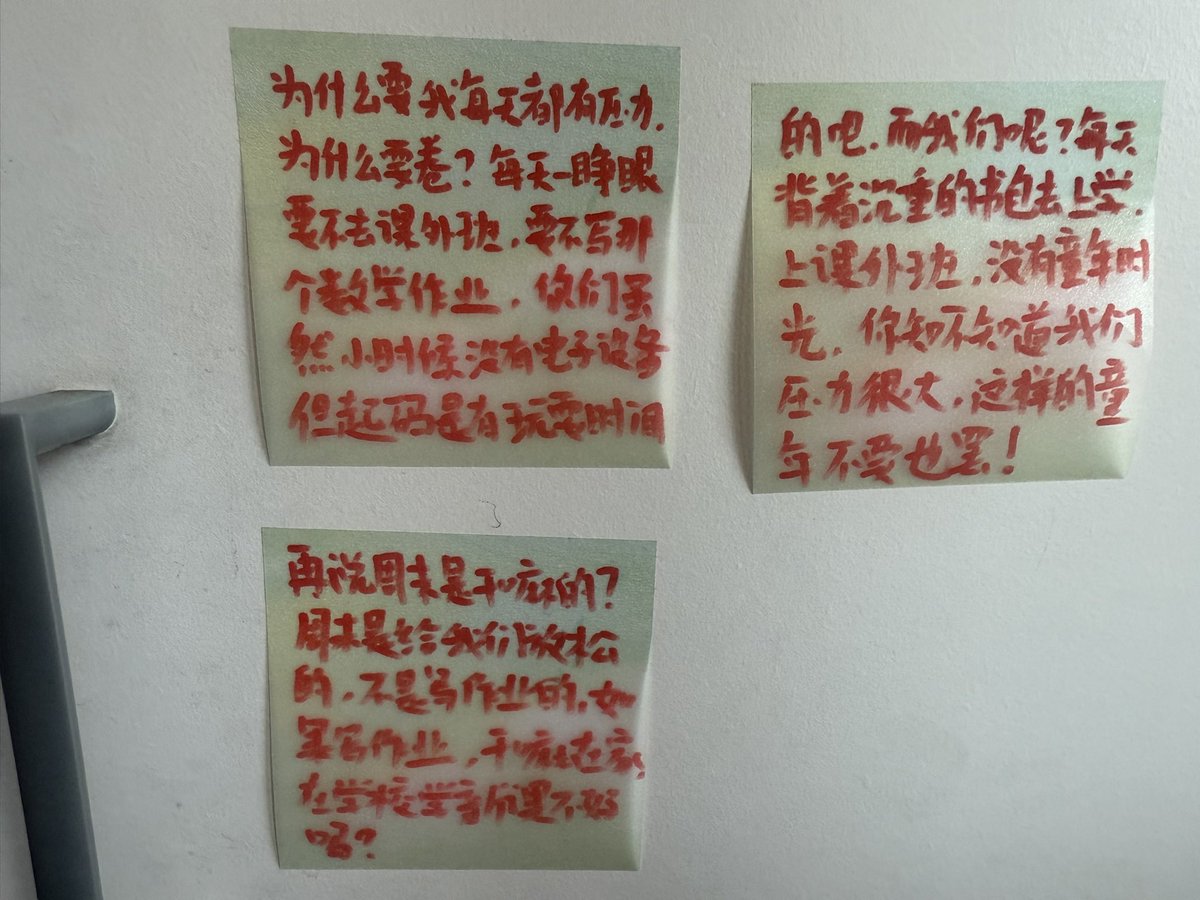 为什么要我每天都有压力.
为什么要卷？每天一睁眼
要不去课外班，要不写那
个数学作业，你们虽
然小时候没有电子设备
但起码是有玩耍时间
的吧.而我们呢？每天
背着沉重的书包去上学.
上课外班，没有童年时
光，你知不知道我们
压力很大，这样的童
年不要也罢！
再说周末是干嘛的？
周末是给我们放松
的，不是写作业的，如
果写作业，干嘛在家
在学校学
不好
吗？